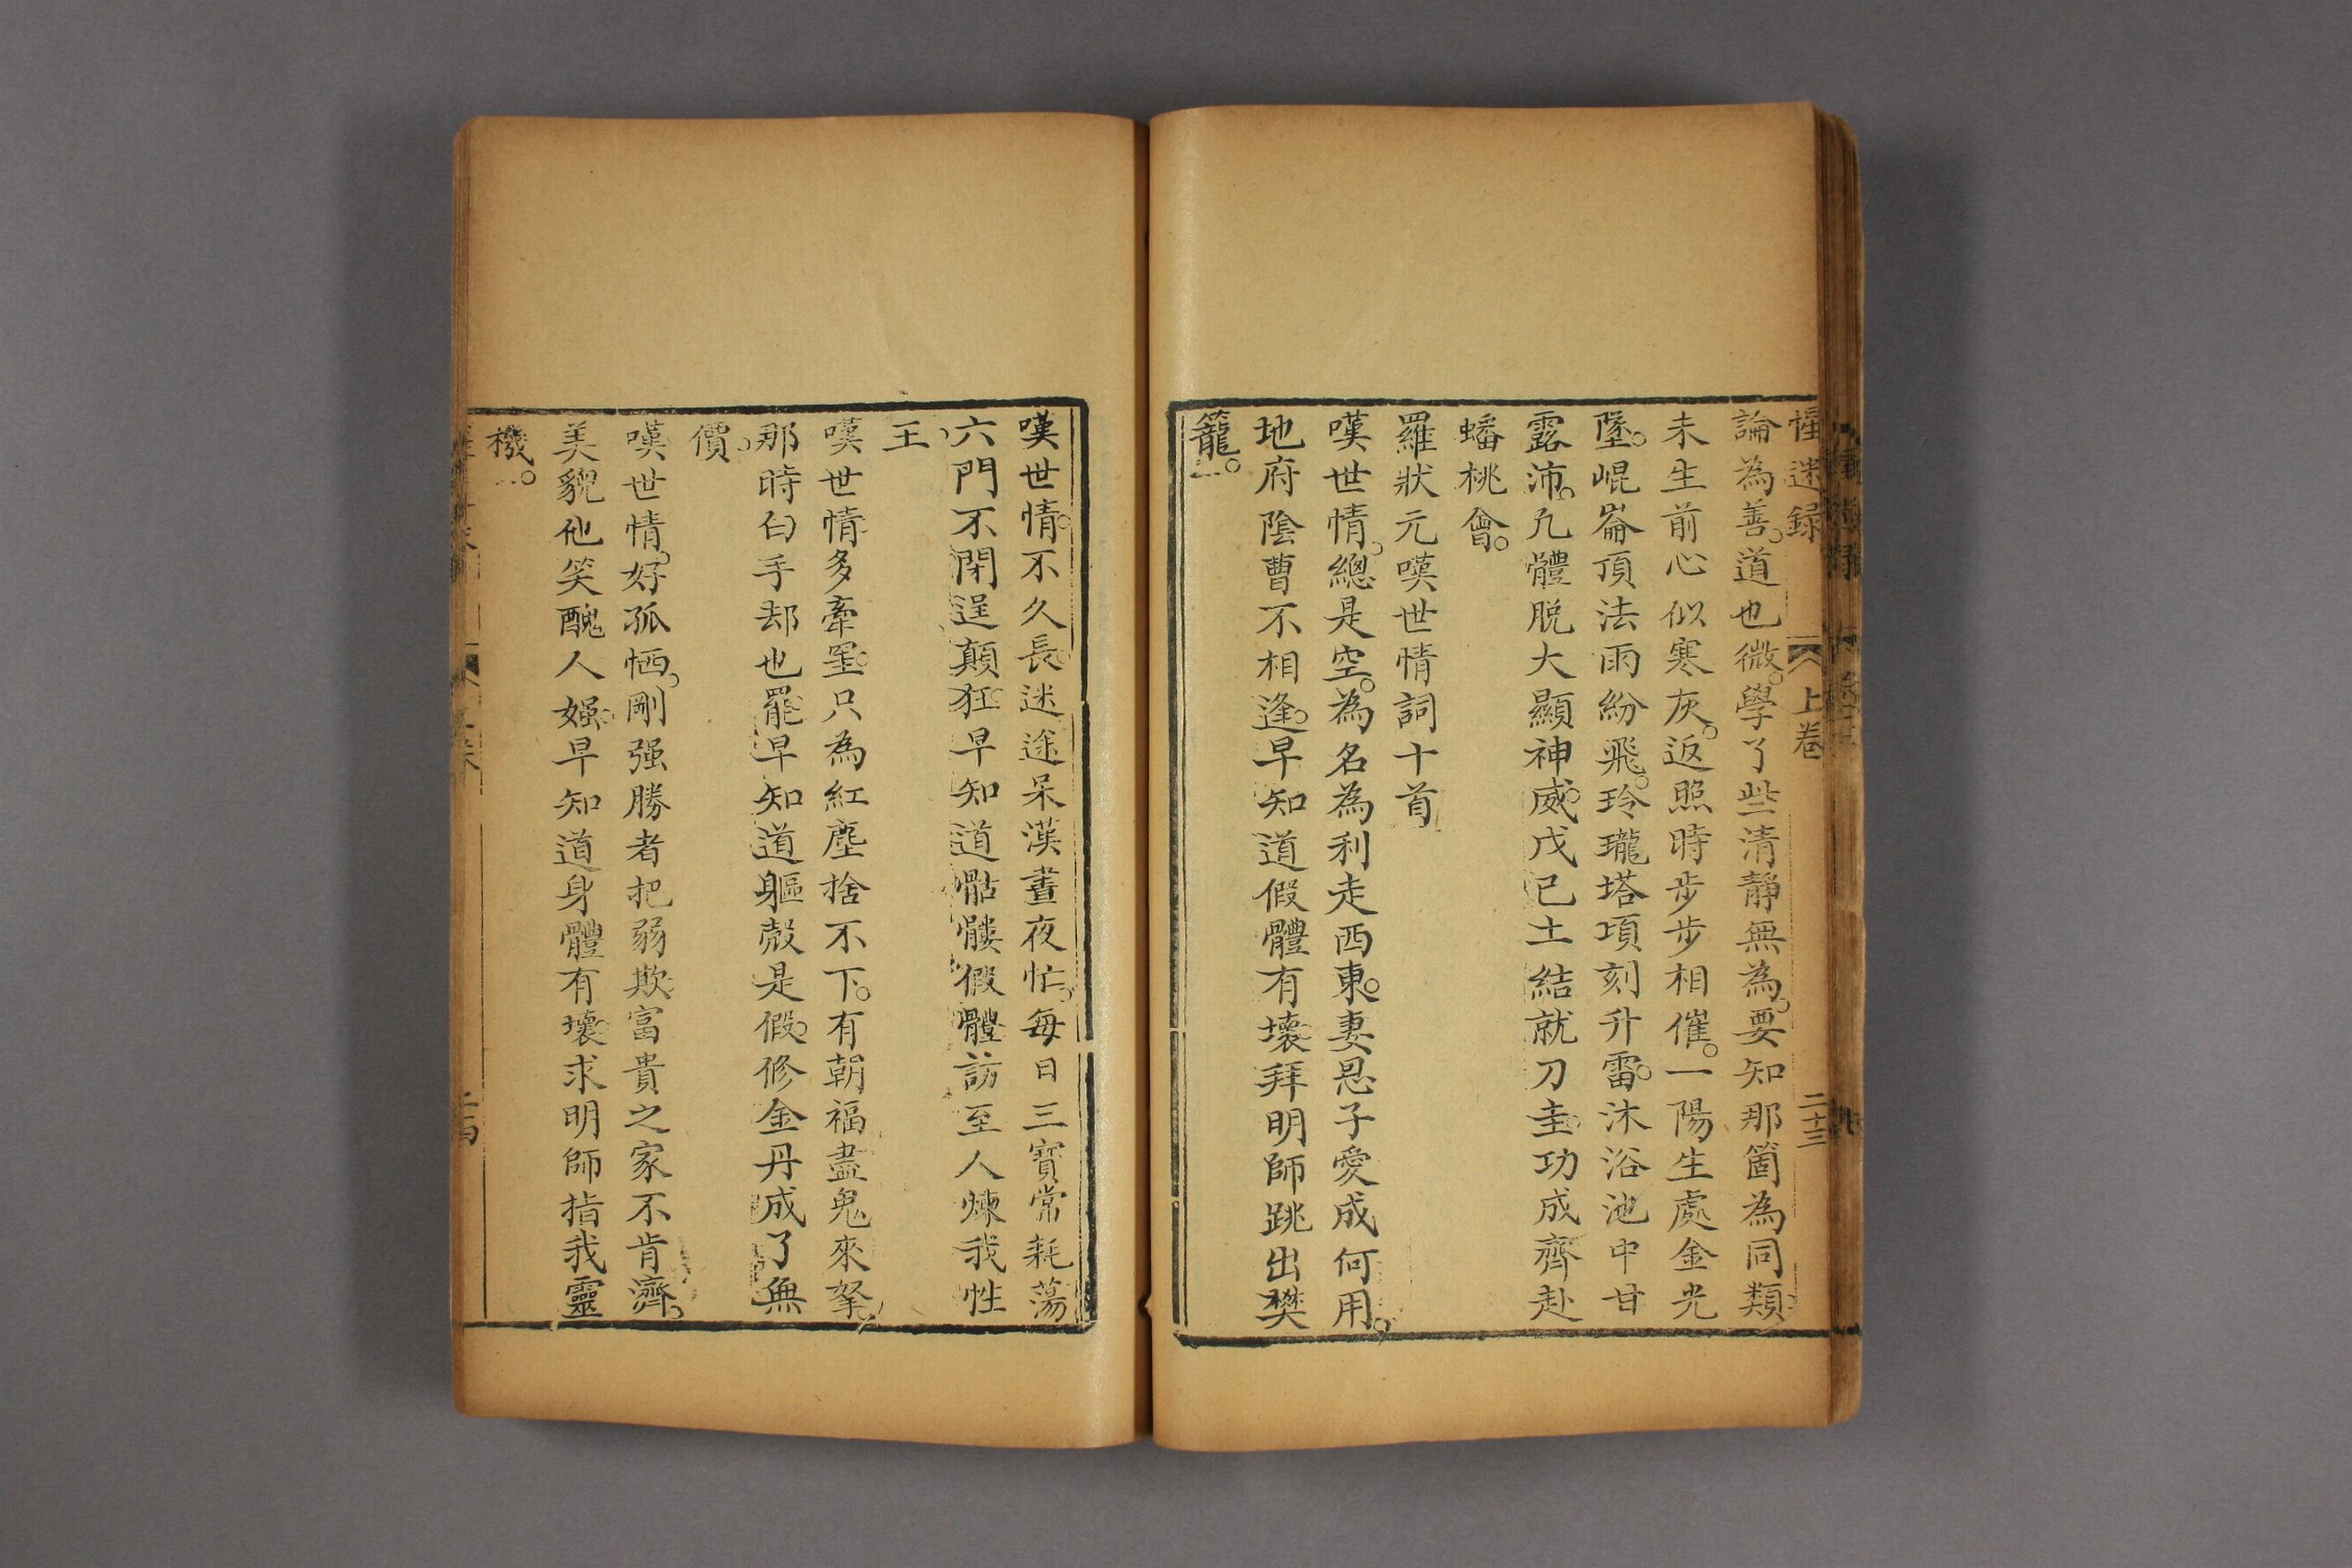 惺迷録 上卷 二十三
論為善。道也微。學了些清靜無為。要知那箇為同類。
未生前心似寒灰。返照時步步相催。一陽生處金光
墜。崐崙頂法雨紛飛。玲瓏塔項刻升雷。沐浴池中甘
露沛。凢體脱大顯神威。戊已土結就刀圭。功成齊赴
蟠桃會。
羅狀元嘆世情詞十首
嘆世情。總是空。為名為利走西東。妻恩子愛成何用。
地府陰曹不相逢。早知道假體有壞拜明師跳出樊
籠。
嘆世情。不久長。迷途呆漢晝夜忙。每日三寶常耗蕩
六門不閉逞顛狂早知道骷髏假體訪至人煉我性
王
嘆世情多牽罣。只為紅塵捨不下。有朝福盡鬼來拏。
那時白手却也罷早知道軀殻是假。修金丹成了無
價。
嘆世情。好孤恓。剛强勝者把弱欺富貴之家不肯濟。
美貌他笑醜人嫗。早知道身體有壞。求明師指我靈
機。